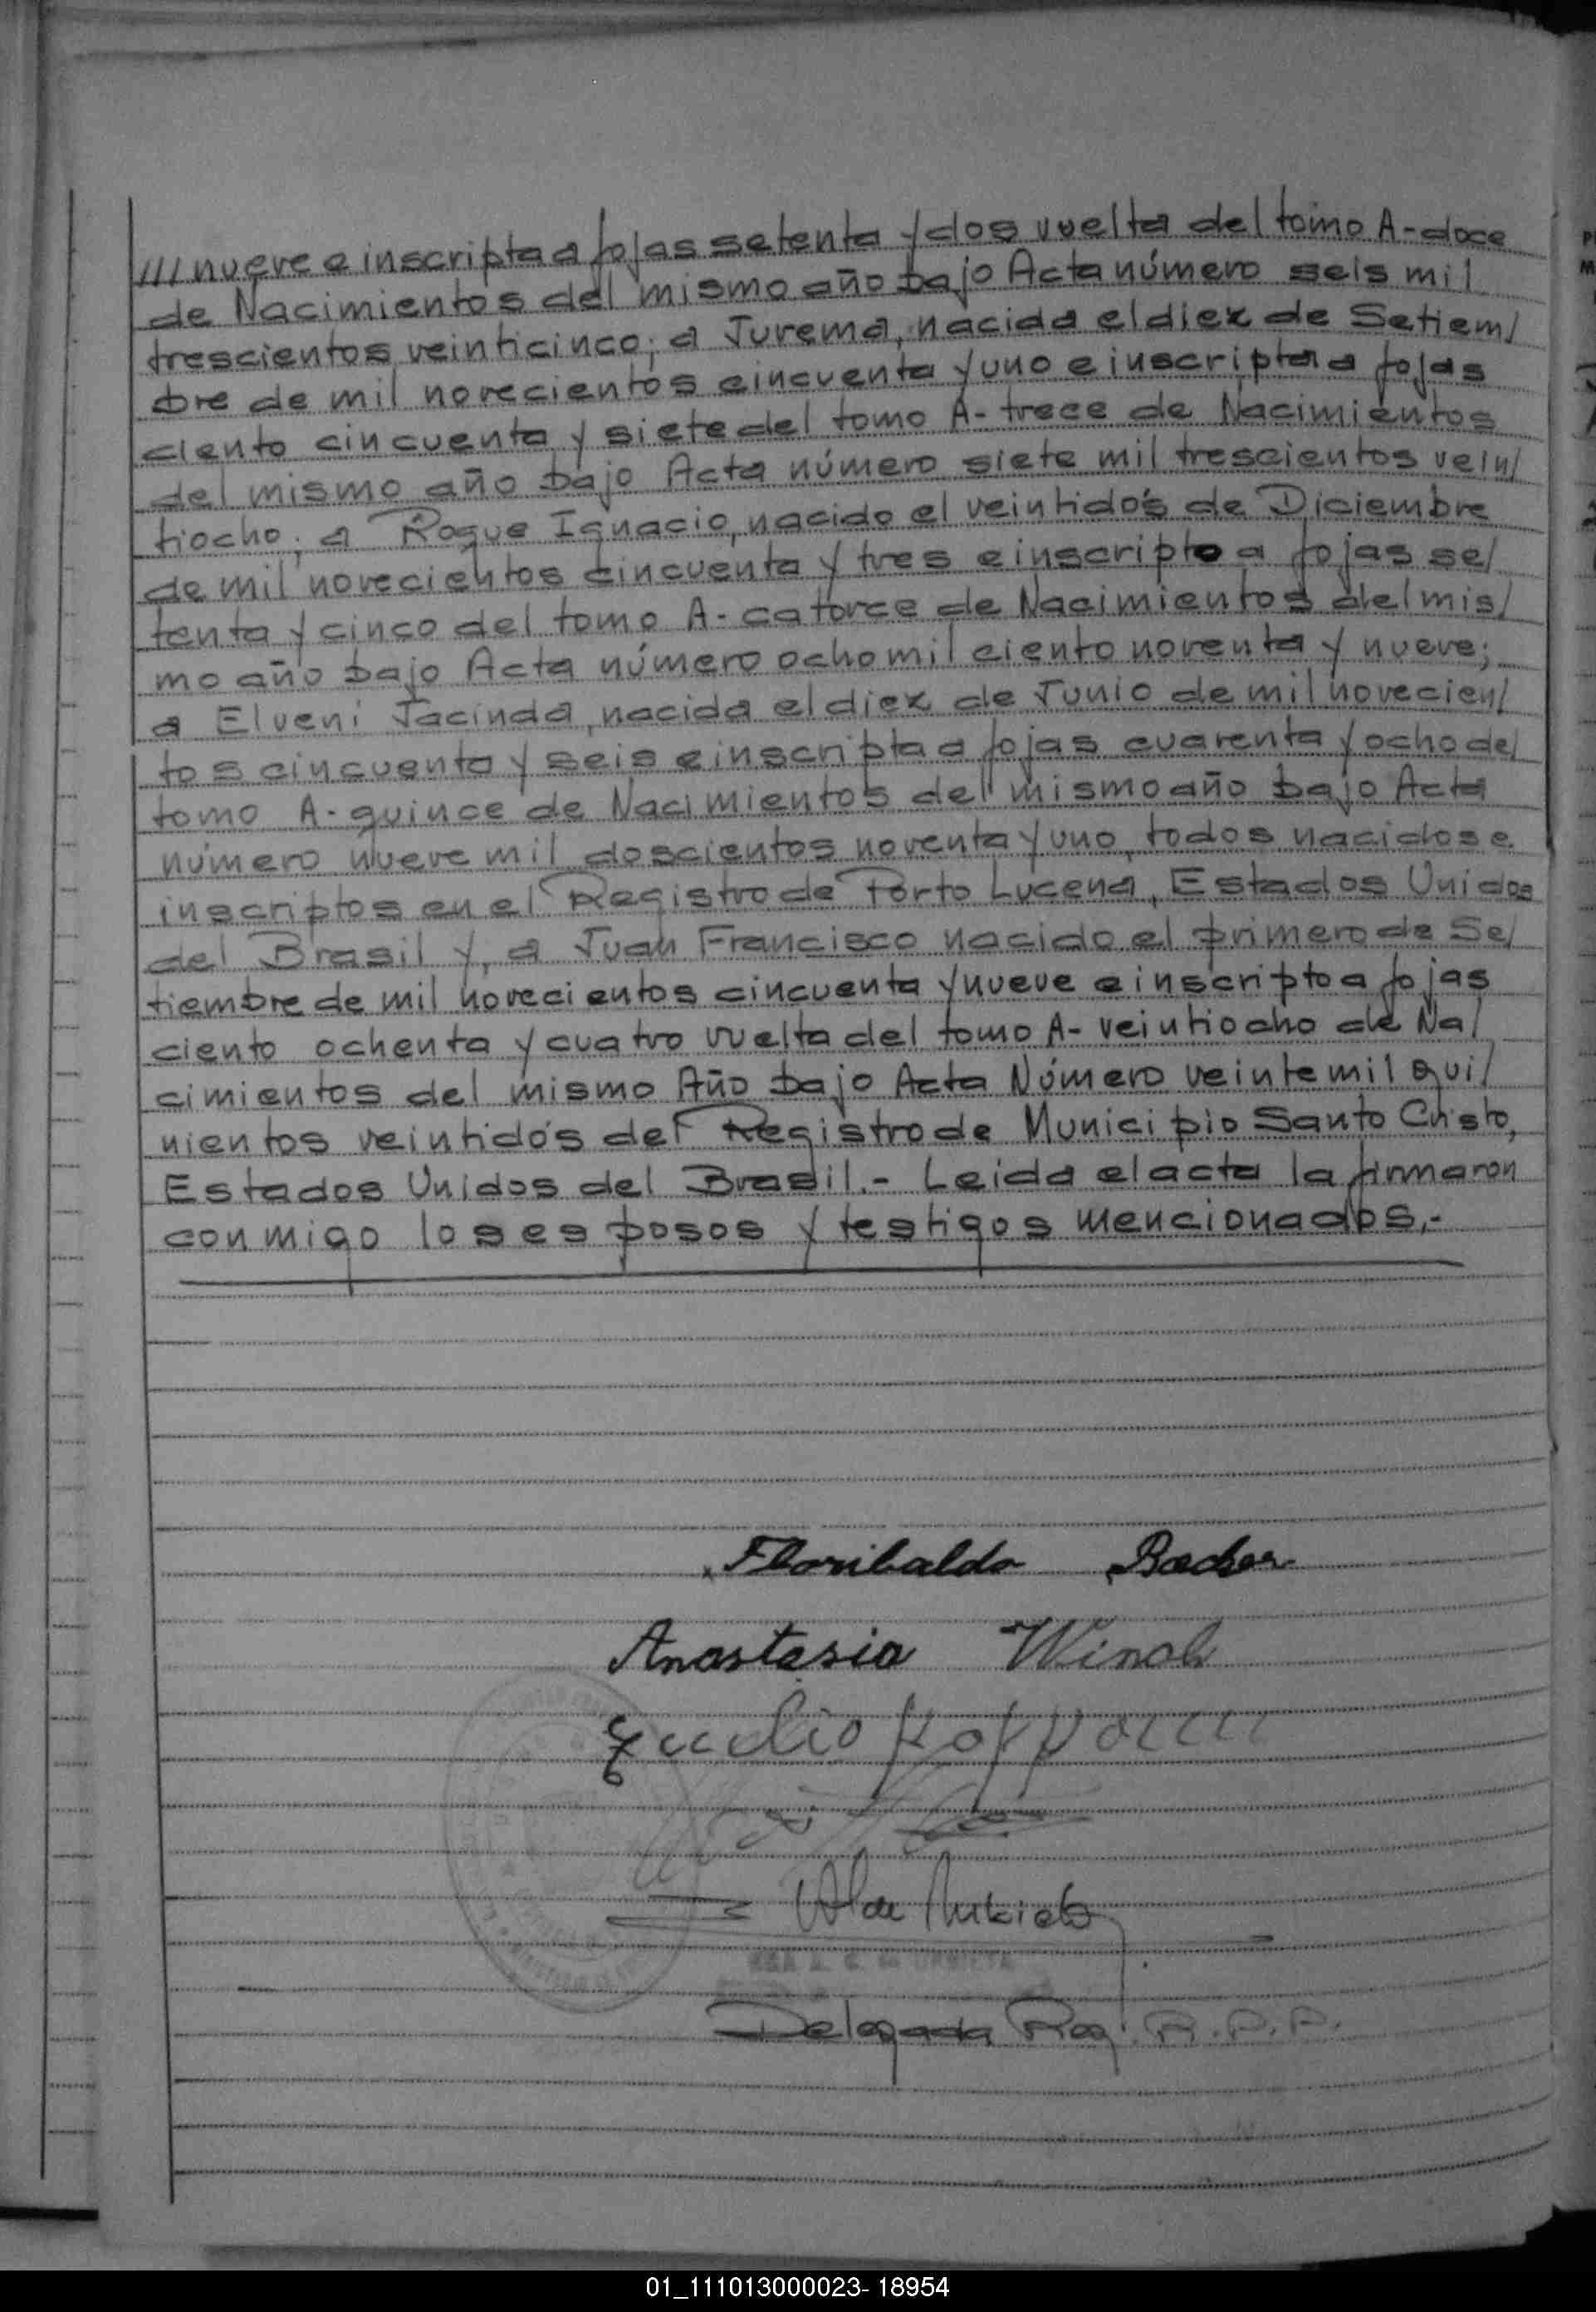 /// nueve e inscripta a fojas setenta y dos vuelta del tomo A-doce
de Nacimientos del mismo año bajo Acta número seis mil
trescientos veinticinco; a Jurema, nacida el diez de Setiem/
bre de mil novecientos cincuenta y uno e inscripta a fojas
ciento cincuenta y siete del tomo A- trece de Nacimientos
del mismo año bajo Acta número siete mil trescientos vein/
tiocho; a Roque Ignacio, nacido el veintidós de Diciembre
de mil novecientos cincuenta y tres e inscripto a fojas se/
tenta y cinco del tomo A- catorce de Nacimientos del mis/
mo año bajo Acta número ocho mil ciento noventa y nueve;
a Elveni Jacinda, nacida el diez de Junio de mil novecien/
tos cincuenta y seis e inscripta a fojas cuarenta y ocho del
tomo A- quince de Nacimientos del mismo año bajo Acta
número nueve mil doscientos noventa y uno, todos nacidos e
inscriptos en el Registro de Porto Lucena, Estados Unidos
del Brasil y, a Juan Francisco nacido el primero de Se/
tiembre de mil novecientos cincuenta y nueve e inscripto a fojas
ciento ochenta y cuatro vuelta del tomo A- veintiocho de Na/
cimientos del mismo Año bajo Acta Número veinte mil qui/
nientos veintidós del Registro de Municipio Santo Cristo,
Estados Unidos del Brasil.- Leida el acta la firmaron
conmigo los esposos y testigos mencionados.-
Floribaldo
Anastasia
Delegada Reg. R.P.P.
01_111013000023- 18954